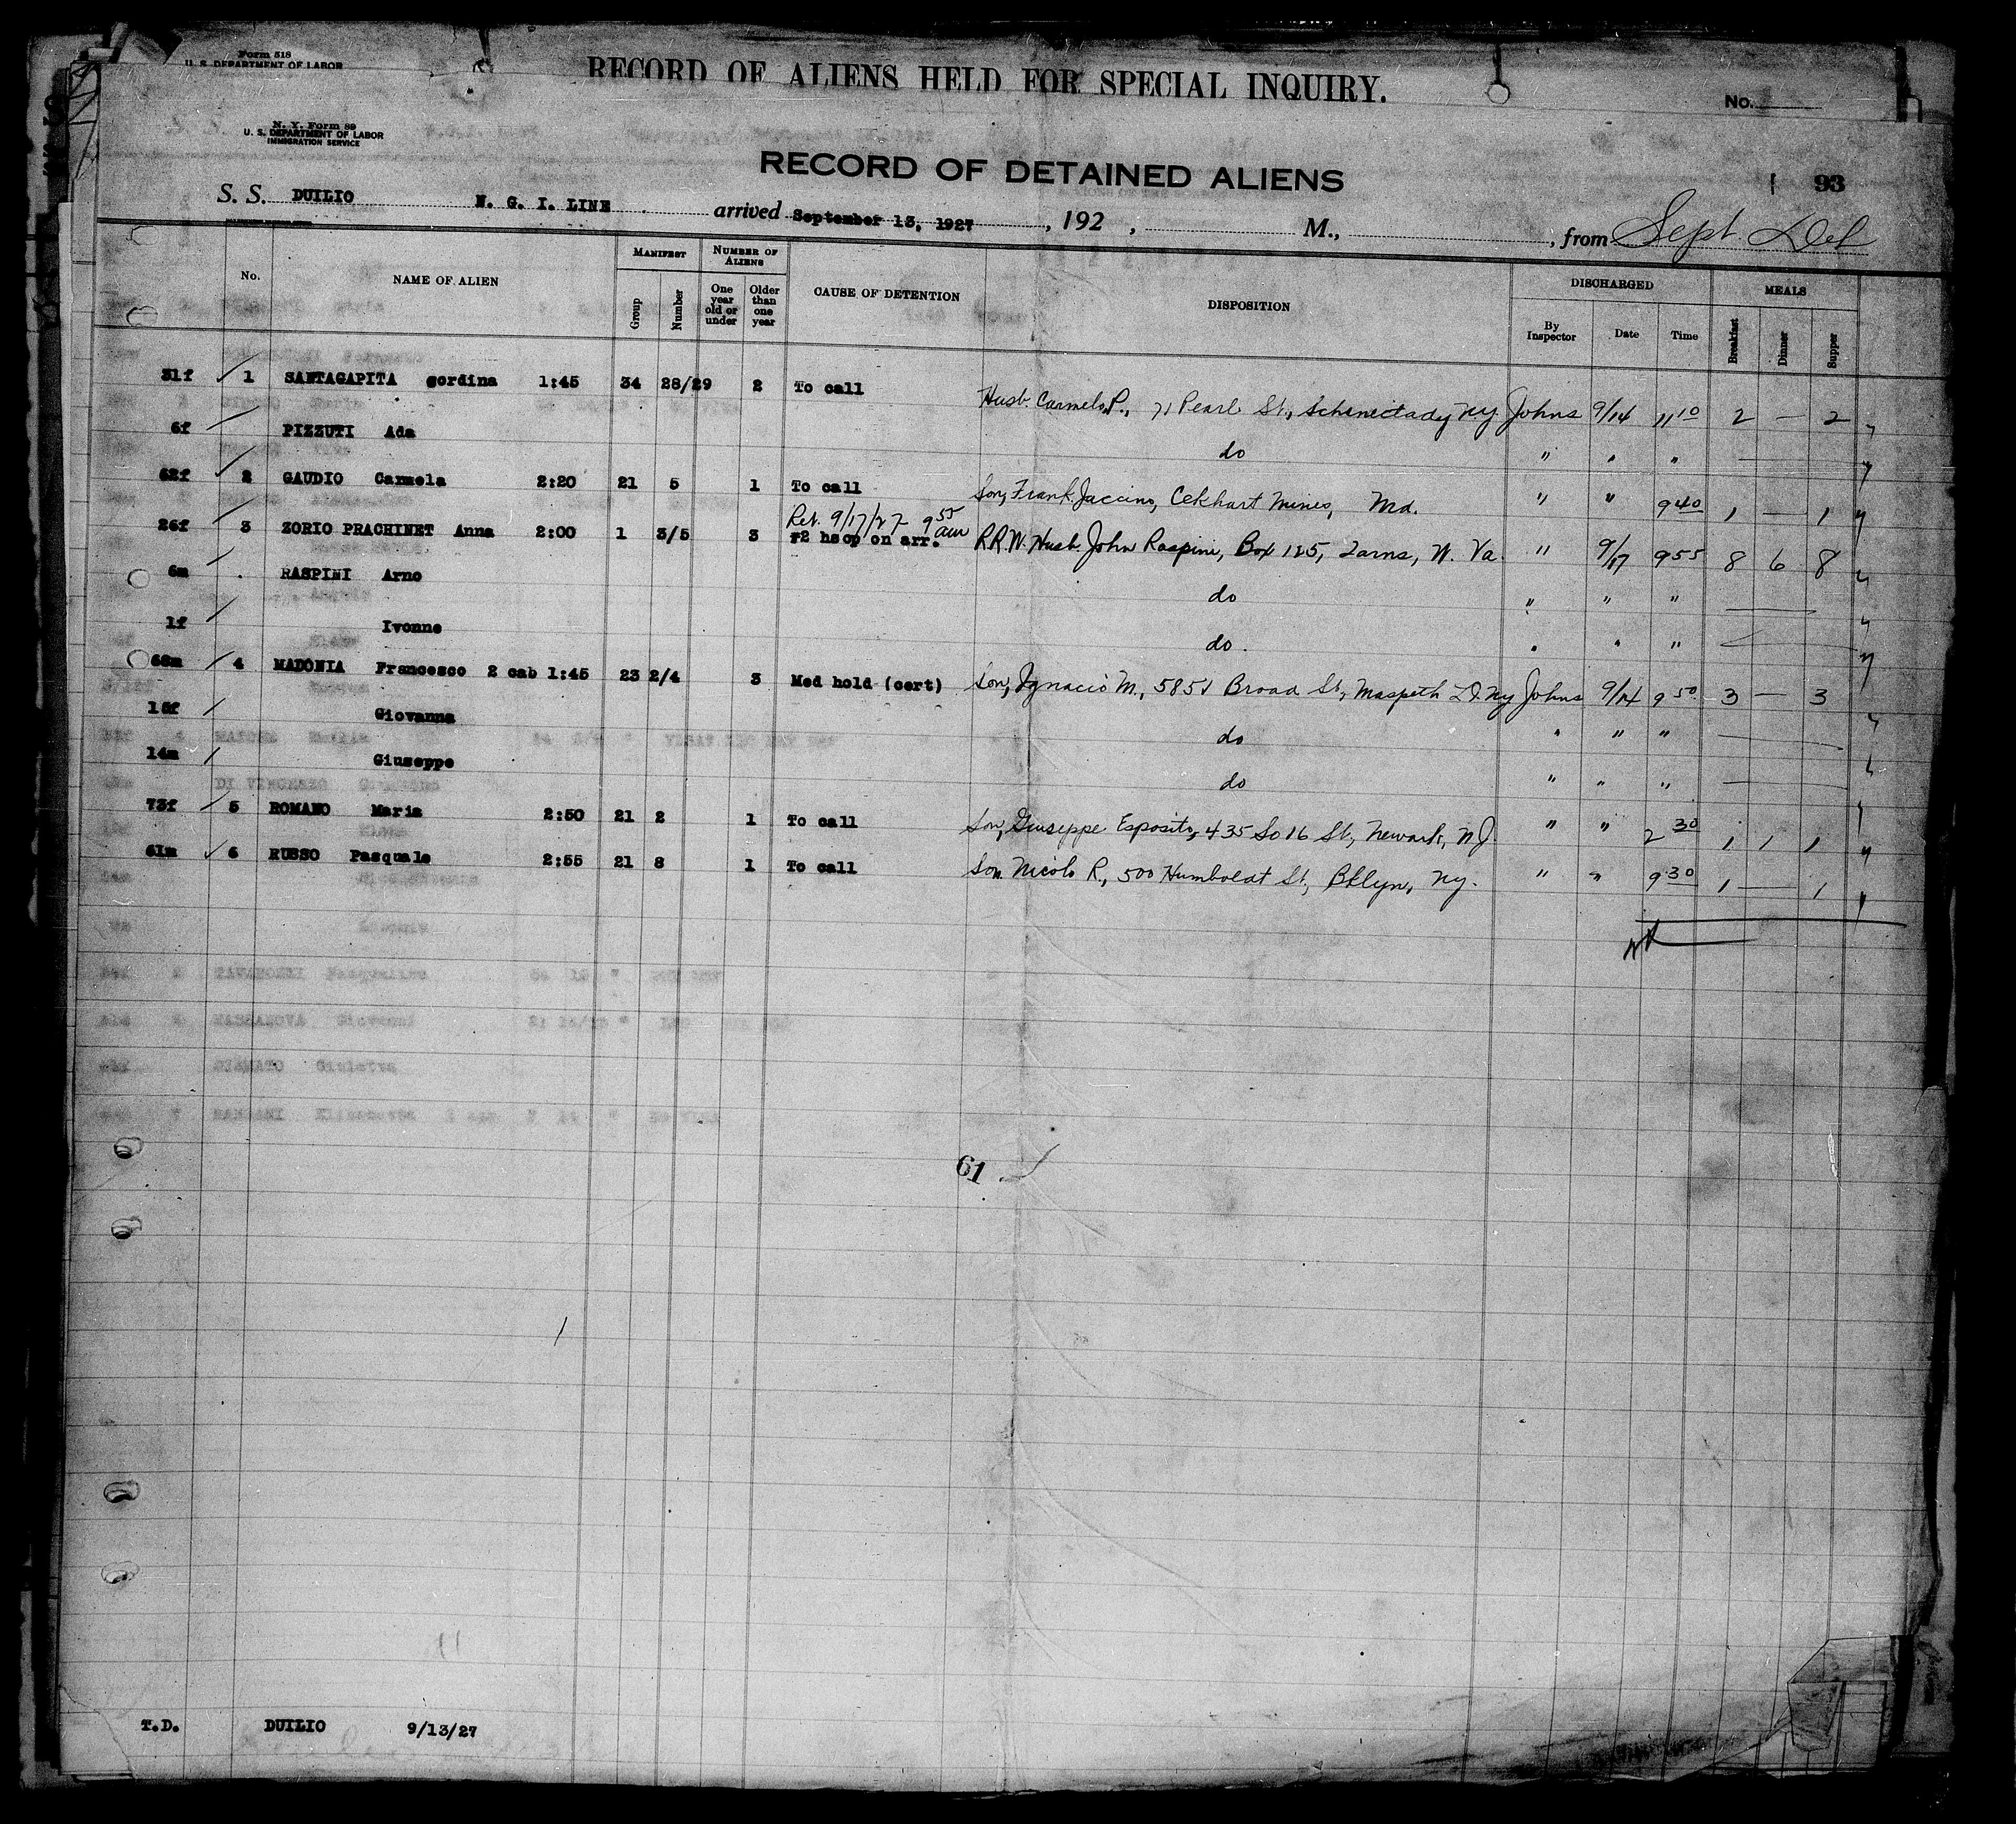 Form 518
U. S. DEPARTMENT OF LABOR
RECORD OF ALIENS HELD FOR SPECIAL INQUIRY.
No.
N. Y. Form 89
U. S. DEPARTMENT OF LABOR
IMMIGRATION SERVICE
RECORD OF DETAINED ALIENS
93
S. S. DUILIO N. G. I. LINE arrived September 13, 1927, 192 , M., , from Sept Del
No. NAME OF ALIEN MANIFEST Group Number NUMBER OF ALIENS One year old or under Older than one year CAUSE OF DETENTION DISPOSITION DISCHARGED By Inspector Date Time MEALS Breakfast Dinner Supper
31f 1 SANTAGAPITA gordina 1:45 34 28/29 2 To call Husb. Carmelo P., 71 Pearl St., Schenectady NY Johns 9/14 11 10 2 — 2
6f PIZZUTI Ada do " " "
62f 2 GAUDIO Carmela 2:20 21 5 1 To call Son, Frank Jaccino, Cekhart Mines, Md. " " 9 40 1 — 1
Ret. 9/17/27 9 55 am
26f 3 ZORIO PRACHINET Anna 2:00 1 3/5 3 r2 hsop on arr. R.R.W. Husb John Raspini, Box 125, W. Va. " 9/17 9 55 8 6 8
6m RASPINI Arno do " " "
1f Ivonne do. " " "
68m 4 MADONIA Francesco 2 cab 1:45 23 2/4 3 Med hold (cert) Son, Ignacio M., 5851 Broad St., Maspeth L.I. NY Johns 9/14 9 50 3 — 3
15f Giovanna do " " "
14m Giuseppe do " " "
73f 5 ROMANO Maria 2:50 21 2 1 To call Son, Giuseppe Esposito, 435 So 16 St., Newark, N.J. " " 2 30 1 1 1
61m 6 RUSSO Pasquale 2:55 21 8 1 To call Son Nicolo R., 500 Humboldt St., Bklyn, Ny. " " 9 30 1 — 1
61
T.D. DUILIO 9/13/27